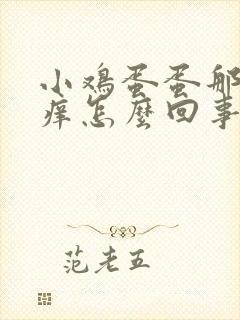 小鸡蛋蛋那
痒怎麼回事
范老五